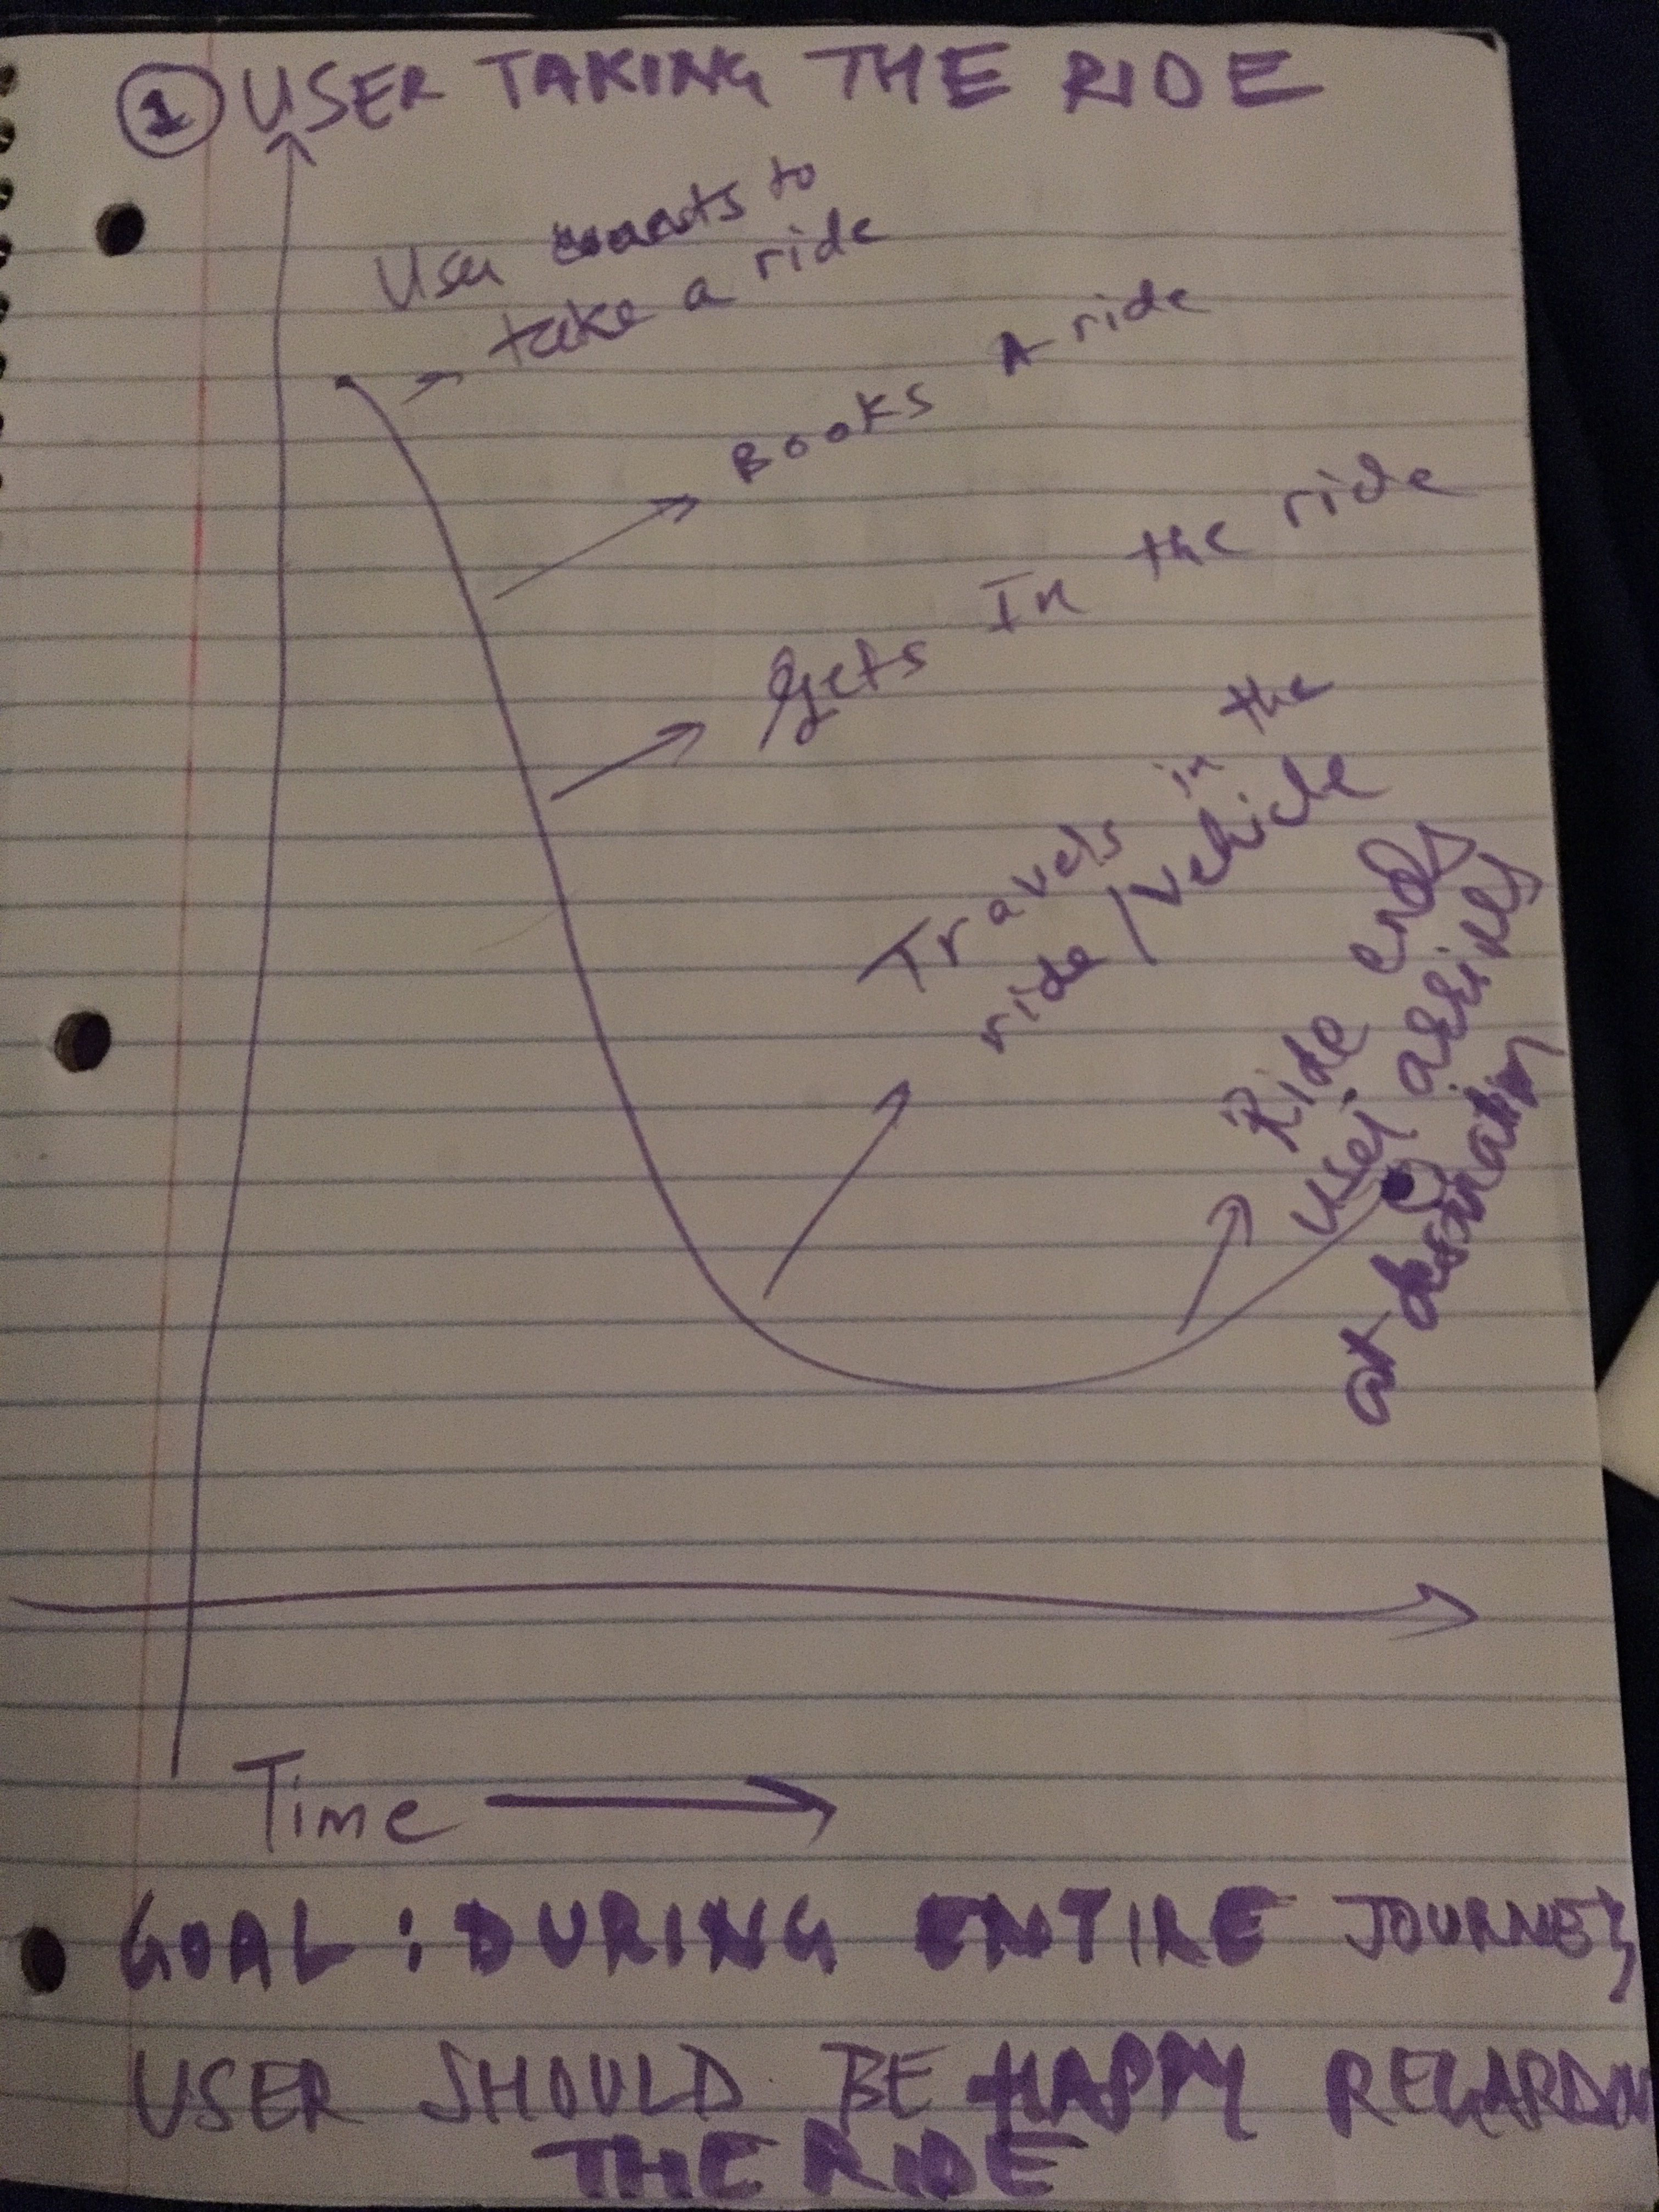 1 USER TAKING THE RIDE
User wants to
take a ride
BOOKS A ride
Gets In the ride
Travels in the
ride/vehicle
Ride ends
User arrives
at destination
Time
GOAL: DURING ENTIRE JOURNEY
USER SHOULD BE HAPPY REGARDING
THE RIDE